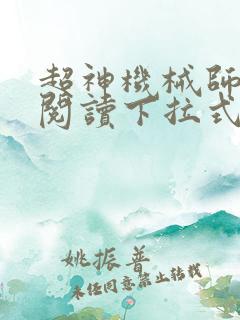 超神機械師
閱讀下拉式
姚振普
未任同意禁止转载